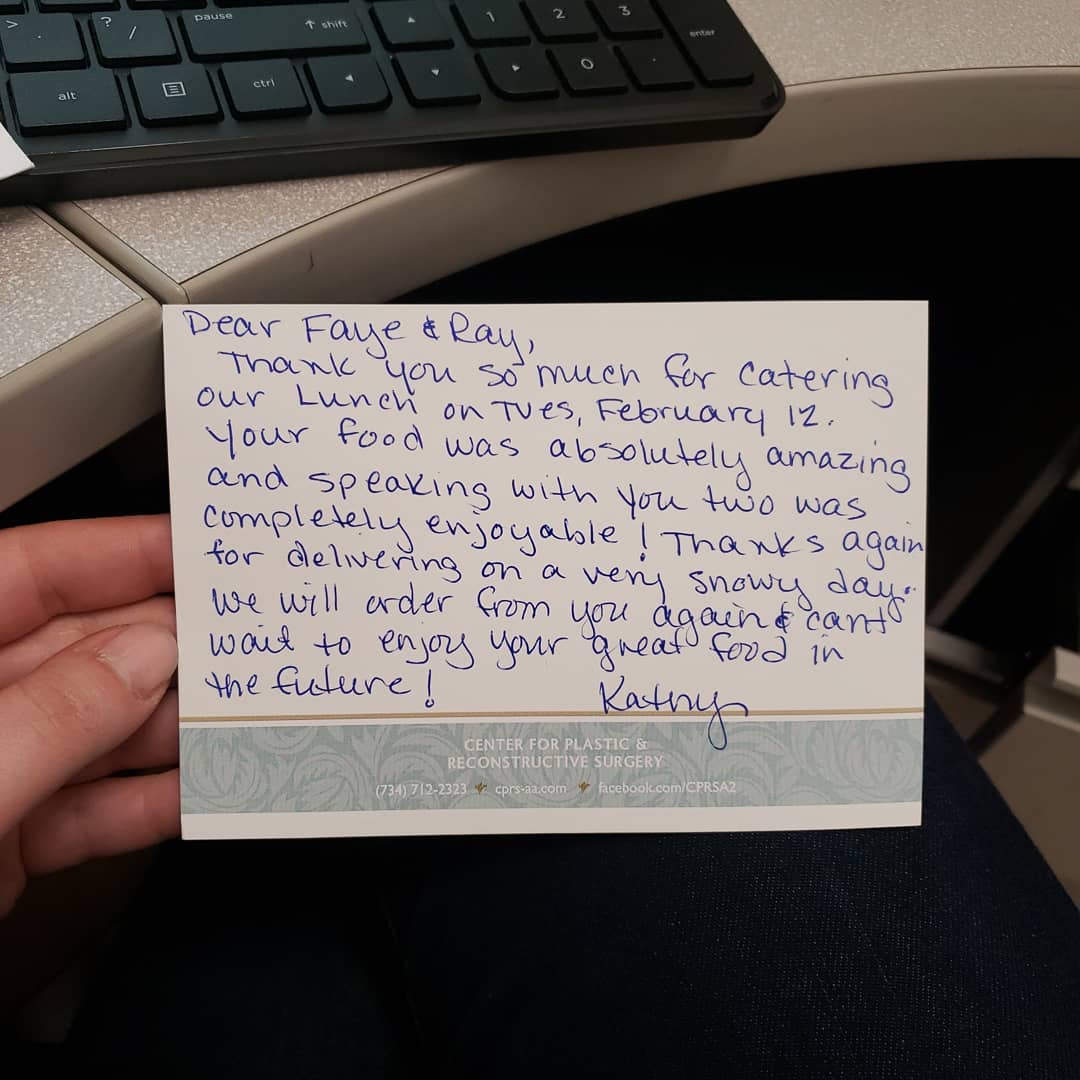 > .
? /
pause
↑ shift
▲
1
2
3
enter
alt
ctrl
◄
▼
►
0
.
Dear Faye & Ray,
Thank you so much for catering
our Lunch on Tues, February 12.
Your food was absolutely amazing
and speaking with you two was
completely enjoyable! Thanks again
for delivering on a very snowy day.
We will order from you again & cant
wait to enjoy your great food in
the future!
Kathy
CENTER FOR PLASTIC &
RECONSTRUCTIVE SURGERY
(734) 712-2323 cprs-aa.com facebook.com/CPRSA2